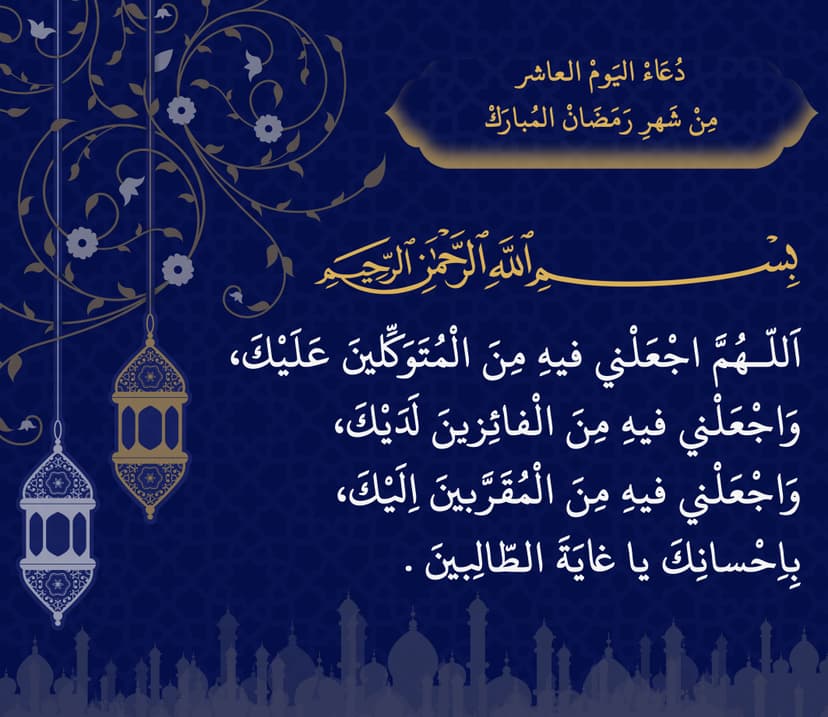 دُعَاءْ اليَومْ العاشر
مِنْ شَهرِ رَمَضَانْ المُبارَكْ
بِسْمِ اللَّهِ الرَّحْمَٰنِ الرَّحِيمِ
اَللّـهُمَّ اجْعَلْني فيهِ مِنَ الْمُتَوَكِّلينَ عَلَيْكَ،
وَاجْعَلْني فيهِ مِنَ الْفائِزينَ لَدَيْكَ،
وَاجْعَلْني فيهِ مِنَ الْمُقَرَّبينَ اِلَيْكَ،
بِاِحْسانِكَ يا غايَةَ الطّالِبينَ .